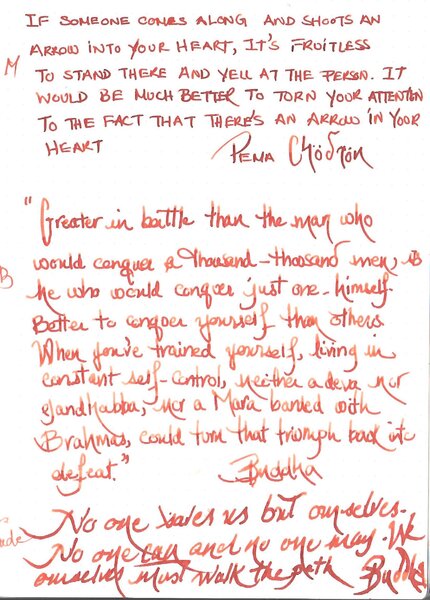 IF SOMEONE COMES ALONG AND SHOOTS AN
ARROW INTO YOUR HEART, IT'S FRUITLESS
M
TO STAND THERE AND YELL AT THE PERSON. IT
WOULD BE MUCH BETTER TO TORN YOUR ATTENTION
TO THE FACT THAT THERE'S AN ARROW IN YOUR
HEART
PEMA Chödrön
"Greater in battle than the man who
would conquer a thousand-thousand men, is
B
he who would conquer just one - himself.
Better to conquer yourself than others.
When you've trained yourself, living in
constant self-control, neither a deva nor
gandhabba, nor a Mara banded with
Brahmas, could turn that triumph back into
defeat."
Buddha
No one saves us but ourselves.
No one can and no one may. We
ourselves must walk the path Buddha